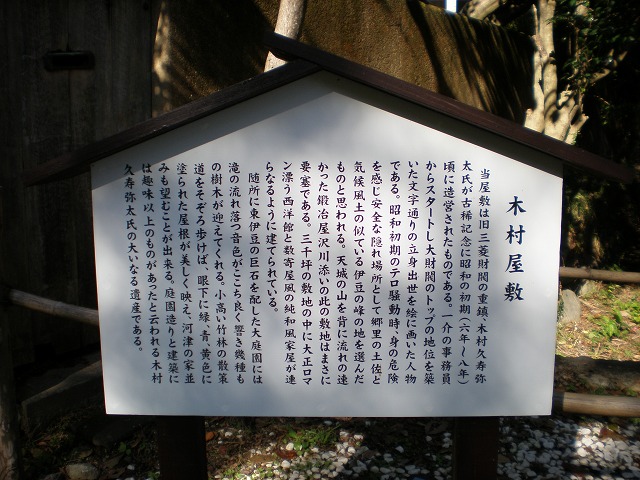 木村屋敷
当屋敷は旧三菱財閥の重鎮、木村久寿弥
太氏が古稀記念に昭和の初期(六年〜八年)
頃に造営されたものである。一介の事務員
からスタートし大財閥のトップの地位を築
いた文字通りの立身出世を絵に画いた人物
である。昭和初期のテロ騒動時、身の危険
を感じ安全な隠れ場所として郷里の土佐と
気候風土の似ている伊豆の峰の地を選んだ
ものと思われる。天城の山を背に流れの速
かった鍛冶屋沢川添いの此の敷地はまさに
要塞である。三千坪の敷地の中に大正ロマ
ン漂う西洋館と数寄屋風の純和風家屋が連
らなるように建てられている。
随所に東伊豆の巨石を配した大庭園には
滝の流れ落つ音色がここち良く響き幾種も
の樹木が迎えてくれる。小高い竹林の散策
道をそぞろ歩けば、眼下に緑、青、黄色に
塗られた屋根が美しく映え、河津の家並
みも望むことが出来る。庭園造りと建築に
は趣味以上のものがあったと云われる木村
久寿弥太氏の大いなる遺産である。